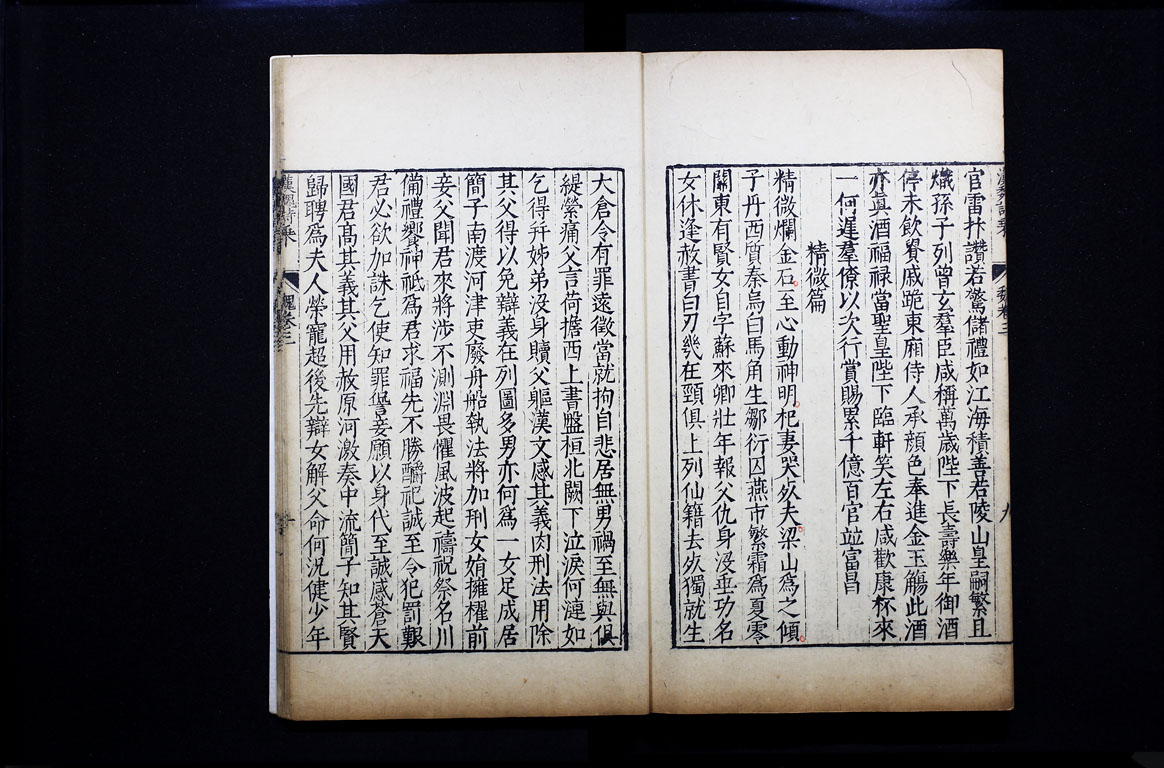 官雷抃讚若驚儲禮如江海積善若陵山皇嗣繁且
熾孫子列曾玄羣臣咸稱萬歲陛下長壽樂年御酒
停未飲貴戚跪東廂侍人承顔色奉進金玉觴此酒
亦真酒福祿當聖皇陛下臨軒笑左右咸歡康杯來
一何遲羣僚以次行賞賜累千億百官竝富昌
精微篇
精微爛金石至心動神明杞妻哭死夫梁山爲之傾
子丹西質秦烏白馬角生鄒衍囚燕市繁霜爲夏零
關東有賢女自字蘇來卿壯年報父仇身没垂功名
女休逢赦書白刃幾在頸俱上列仙籍去死獨就生
大倉令有罪遠徵當就拘自悲居無男禍至無與俱
緹縈痛父言荷擔西上書盤桓北闕下泣淚何漣如
乞得并姊弟没身贖父軀漢文感其義肉刑法用除
其父得以免辯義在列圖多男亦何爲一女足成居
簡子南渡河津吏廢舟船執法將加刑女娟擁櫂前
妾父聞君來將涉不測淵畏懼風波起禱祝祭名川
備禮饗神祇爲君求福先不勝釂祀誠至令犯罰艱
君必欲加誅乞使知罪諐妾願以身代至誠感蒼天
國君髙其義其父用赦原河激奏中流簡子知其賢
歸聘爲夫人榮寵超後先辯女解父命何況健少年
漢魏詩乘
魏卷三